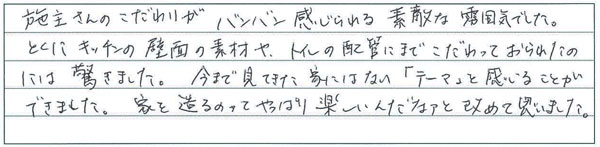 施主さんのこだわりが バンバン感じられる 素敵な雰囲気でした。
とくに キッチンの壁面の素材や、トイレの配管にまでこだわっておられたの
には 驚きました。 今まで見てきた家にはない「テーマ」と感じることが
できました。 家を造るのってやっぱり楽しいんだなぁと改めて思いました。